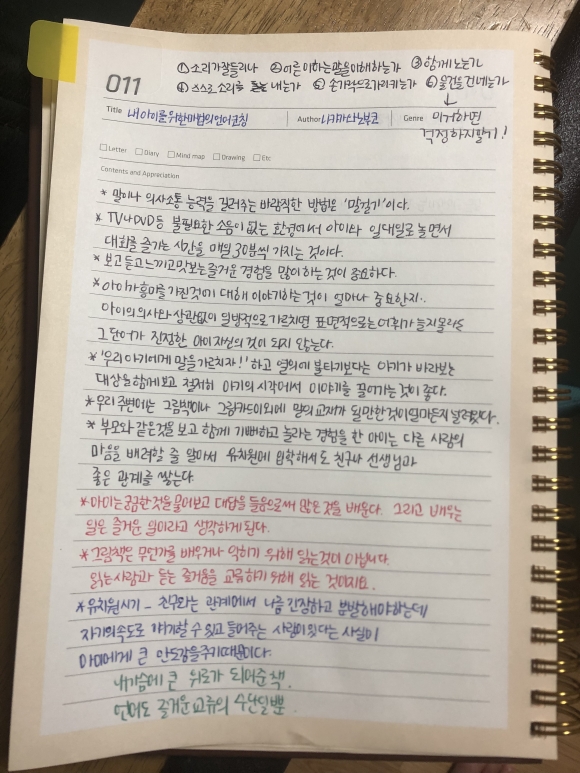 ① 소리가 잘들리나 ② 어른이하는말을이해하는가 ③ 함께 노는가
④ 스스로 소리를 내는가 ⑤ 손가락으로가리키는가 ⑥ 물건을 건네는가
↓
011
Title 내 아이를 위한 마법의 언어코칭 Author 나카가와 노부코 Genre 이거하면
걱정하지말기!
Letter Diary Mind map Drawing Etc
Contents and Appreciation
* 말이나 의사소통 능력을 길러주는 바람직한 방법은 '말걸기'이다.
* TV나 DVD등 불필요한 소음이 없는 환경에서 아이와 일대일로 놀면서
대화를 즐기는 시간을 매일 30분씩 가지는 것이다.
* 보고 듣고 느끼고 맛보는 즐거운 경험을 많이 하는 것이 중요하다.
* 아이가 흥미를 가진것에 대해 이야기하는 것이 얼마나 중요한지..
아이의 의사와 상관없이 일방적으로 가르치면 표면적으로는 어휘가 늘지몰라도
그 단어가 진정한 아이 자신의 것이 되지 않는다.
* '우리 아이에게 말을 가르치자!' 하고 열의에 불타기보다는 아기가 바라보는
대상을 함께 보고 철저히 아기의 시각에서 이야기를 끌어가는 것이 좋다.
* 우리 주변에는 그림책이나 그림카드 이외에 말의 교재가 될만한것이 얼마든지 널려있다.
* 부모와 같은것을 보고 함께 기뻐하고 놀라는 경험을 한 아이는 다른 사람의
마음을 배려할 줄 알아서 유치원에 입학해서도 친구나 선생님과
좋은 관계를 쌓는다.
* 아이는 궁금한것을 물어보고 대답을 들음으로써 많은 것을 배운다. 그리고 배우는
일은 즐거운 일이라고 생각하게 된다.
* 그림책은 무언가를 배우거나 익히기 위해 읽는것이 아닙니다.
읽는사람과 듣는 즐거움을 교류하기 위해 읽는 것이지요.
* 유치원시기 - 친구와는 관계에서 나름 긴장하고 분발해야하는데
자기의 속도로 얘기할 수 있고 들어주는 사람이 있다는 사실이
아이에게 큰 안도감을 주기 때문이다.
내가슴에 큰 위로가 되어준 책.
언어도 즐거운 교류의 수단일뿐